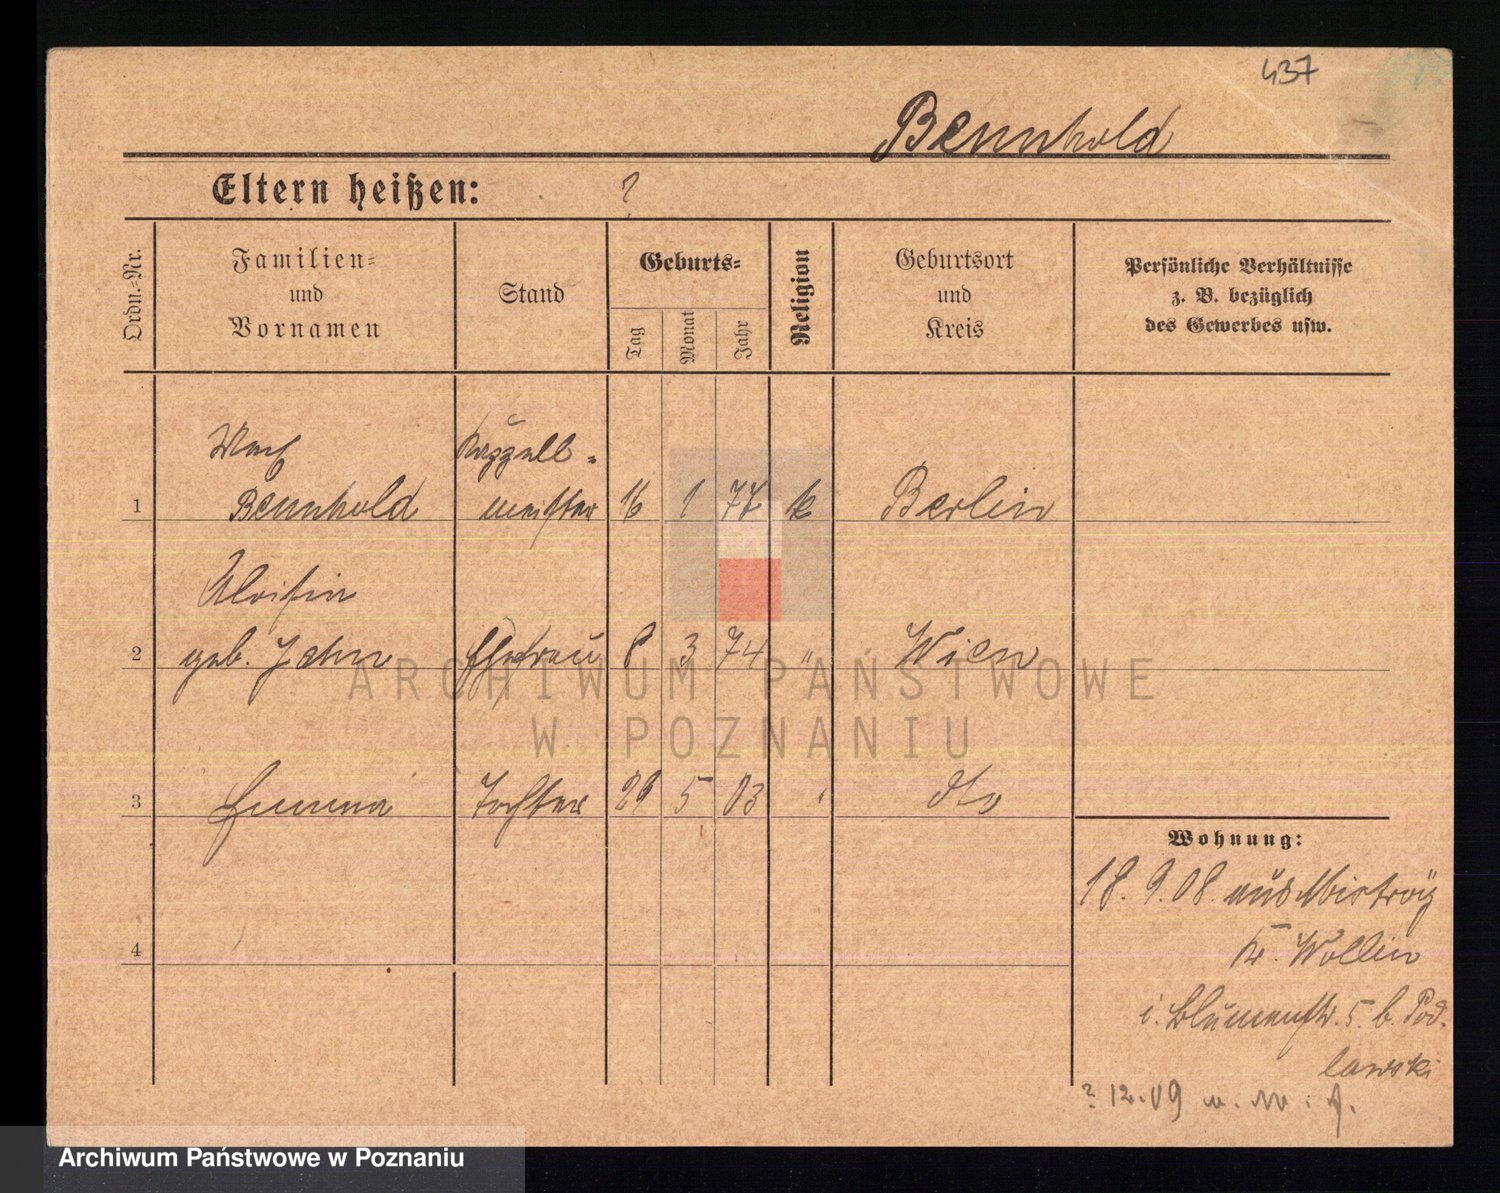 437
Bennhold
Eltern heißen: ?
Ordn.-Nr.
Familien-
und
Vornamen
Stand
Geburts-
Tag
Monat
Jahr
Religion
Geburtsort
und
Kreis
Persönliche Verhältnisse
z. B. bezüglich
des Gewerbes usw.
Max Kappell-
1 Bennhold meister 16 1 77 k Berlin
Aloisia
2 geb. Jahn Ehefrau 8 3 74 " Wien
3 Emma Tochter 29 5 03 " dto
Wohnung:
18. 9. 08. aus Misdroy
Kr. Wollin
4
i. Blumenstr. 5. b. Pod-
lawski
? 12. 09
ARCHIWUM PAŃSTWOWE
W POZNANIU
Archiwum Państwowe w Poznaniu